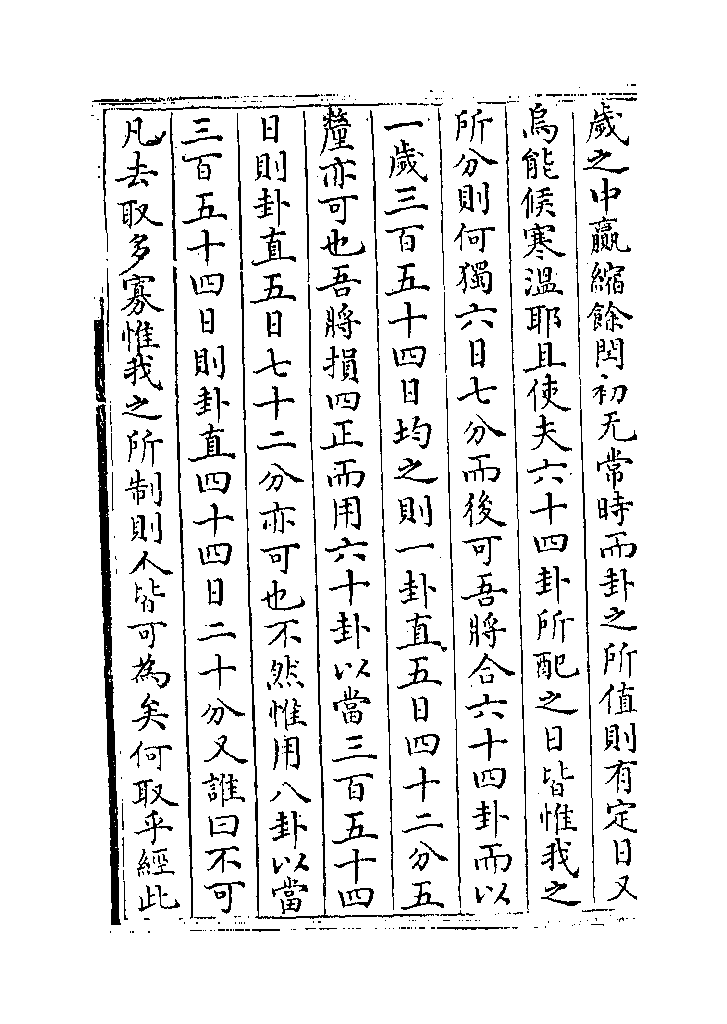 歲之中羸縮餘閏初无常時而卦之所值則有定日又
烏能候寒溫耶且使夫六十四卦所配之日皆惟我之
所分則何獨六日七分而後可吾將合六十四卦而以
一歲三百五十四日均之則一卦直五日四十二分五
釐亦可也吾將損四正而用六十卦以當三百五十四
日則卦直五日七十二分亦可也不然惟用八卦以當
三百五十四日則卦直四十四日二十分又誰曰不可
凡去取多寡惟我之所制則人皆可為矣何取乎經此